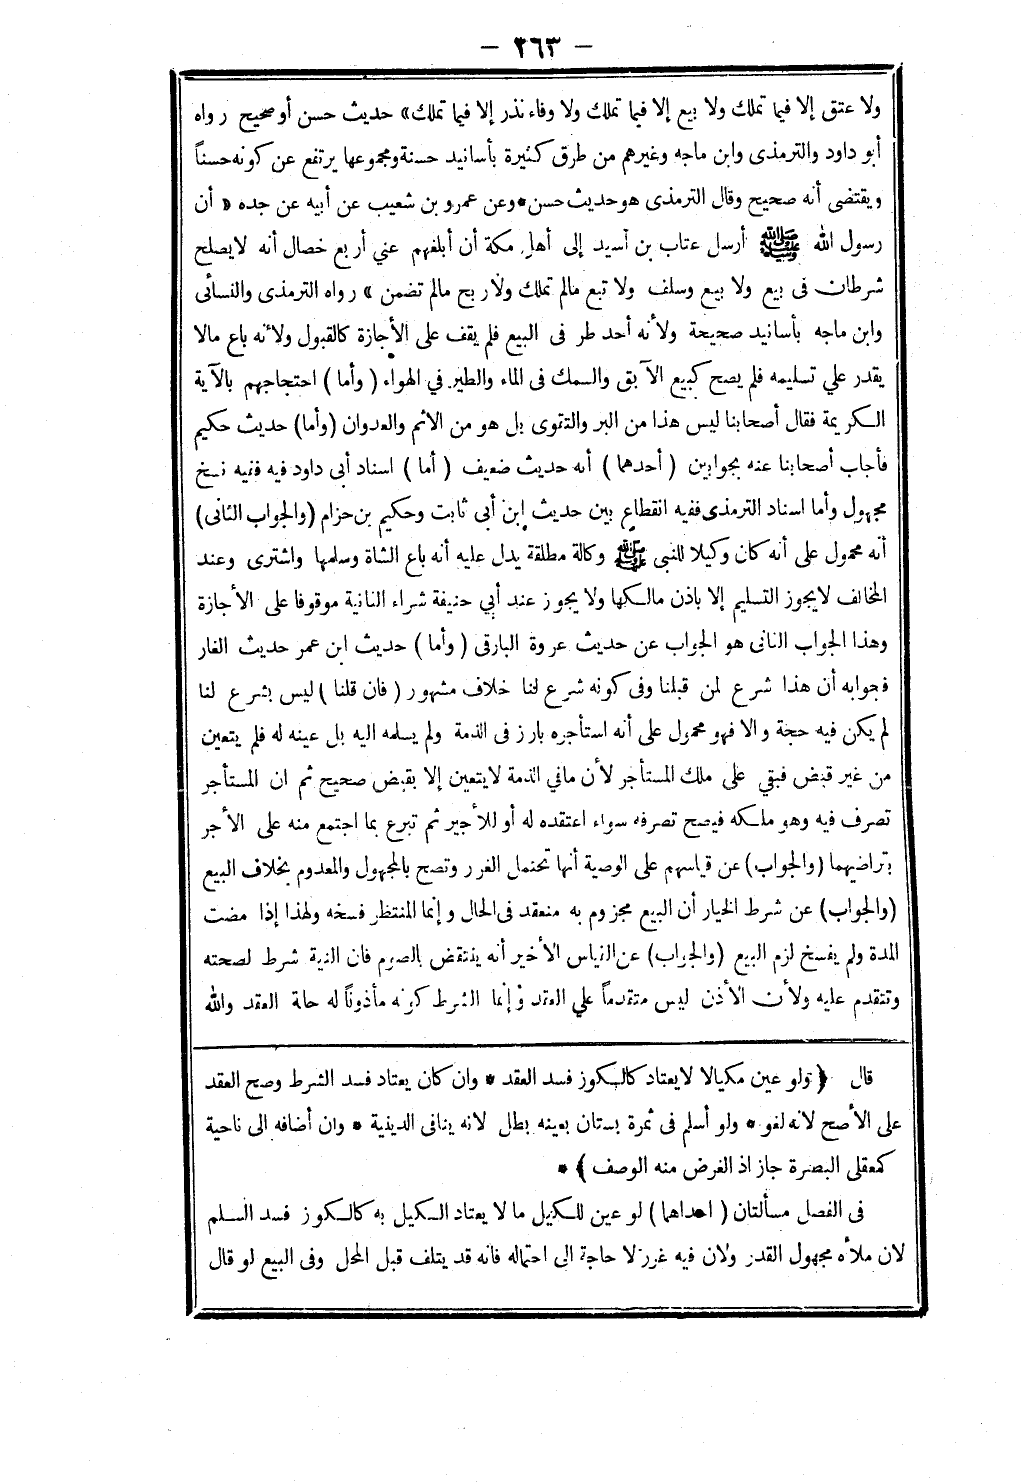 — ٢٦٣ —
ولا عتق إلا فيما تملك ولا بيع إلا فيما تملك ولا وفاء نذر إلا فيما تملك» حديث حسن أو صحيح رواه
أبو داود والترمذى وابن ماجه وغيرهم من طرق كثيرة بأسانيد حسنة ومجموعها يرتفع عن كونه حسناً
ويقتضى أنه صحيح وقال الترمذى هو حديث حسن * وعن عمرو بن شعيب عن أبيه عن جده « أن
رسول الله ﷺ أرسل عتاب بن أسيد إلى أهل مكة أن أبلغهم عني أربع خصال أنه لايصلح
شرطان فى بيع ولا بيع وسلف ولا تبع مالم تملك ولا ربح مالم تضمن » رواه الترمذى والنسائى
وابن ماجه بأسانيد صحيحة ولأنه أحد طر فى البيع فلم يقف على الأجازة كالقبول ولانه باع مالا
يقدر علي تسليمه فلم يصح كبيع الآبق والسمك فى الماء والطير في الهواء ( وأما ) احتجاجهم بالآية
الكريمة فقال أصحابنا ليس هذا من البر والتقوى بل هو من الاثم والعدوان (وأما) حديث حكيم
فأجاب أصحابنا عنه بجوابين ( أحدهما ) أنه حديث ضعيف ( أما ) اسناد أبى داود فيه ففيه شيخ
مجهول وأما اسناد الترمذى ففيه انقطاع بين حديث ابن أبى ثابت وحكيم بن حزام (والجواب الثانى)
أنه محمول على أنه كان وكيلا للنبى ﷺ وكالة مطلقة يدل عليه أنه باع الشاة وسلمها واشترى وعند
المخالف لايجوز التسليم إلا باذن مالكها ولا يجوز عند أبي حنيفة شراء الثانية موقوفا على الأجازة
وهذا الجواب الثانى هو الجواب عن حديث عروة البارقى ( وأما ) حديث ابن عمر حديث الغار
فجوابه أن هذا شرع لمن قبلنا وفى كونه شرع لنا خلاف مشهور ( فان قلنا ) ليس بشرع لنا
لم يكن فيه حجة والا فهو محمول على أنه استأجره بارز فى الذمة ولم يسلمه اليه بل عينه له فلم يتعين
من غير قبض فبقي على ملك المستأجر لأن مافي الذمة لايتعين إلا بقبض صحيح ثم ان المستأجر
تصرف فيه وهو ملكه فيصح تصرفه سواء اعتقده له أو للأجير ثم تبرع بما اجتمع منه على الأجر
بتراضيهما (والجواب) عن قياسهم على الوصية أنها تحتمل الغرر وتصح بالمجهول والمعدوم بخلاف البيع
(والجواب) عن شرط الخيار أن البيع مجزوم به منعقد فى الحال وإنما المنتظر فسخه ولهذا إذا مضت
المدة ولم يفسخ لزم البيع (والجواب) عن القياس الأخير أنه ينتقض بالصوم فان النية شرط لصحته
وتتقدم عليه ولأن الأذن ليس متقدماً علي العقد وإنما الشرط كونه مأذوناً له حالة العقد والله
قال ﴿ ولو عين مكيالا لايعتاد كالكوز فسد العقد * وان كان يعتاد فسد الشرط وصح العقد
على الأصح لانه لغو * ولو أسلم فى ثمرة بستان بعينه بطل لانه ينافى الدينية * وان أضافه الى ناحية
كمعقلى البصرة جاز اذ الغرض منه الوصف ﴾ *
فى الفصل مسألتان ( احداهما ) لو عين للكيل ما لا يعتاد الكيل به كالكوز فسد السلم
لان ملأه مجهول القدر ولان فيه غررا لا حاجة الى احتماله فانه قد يتلف قبل المحل وفى البيع لو قال